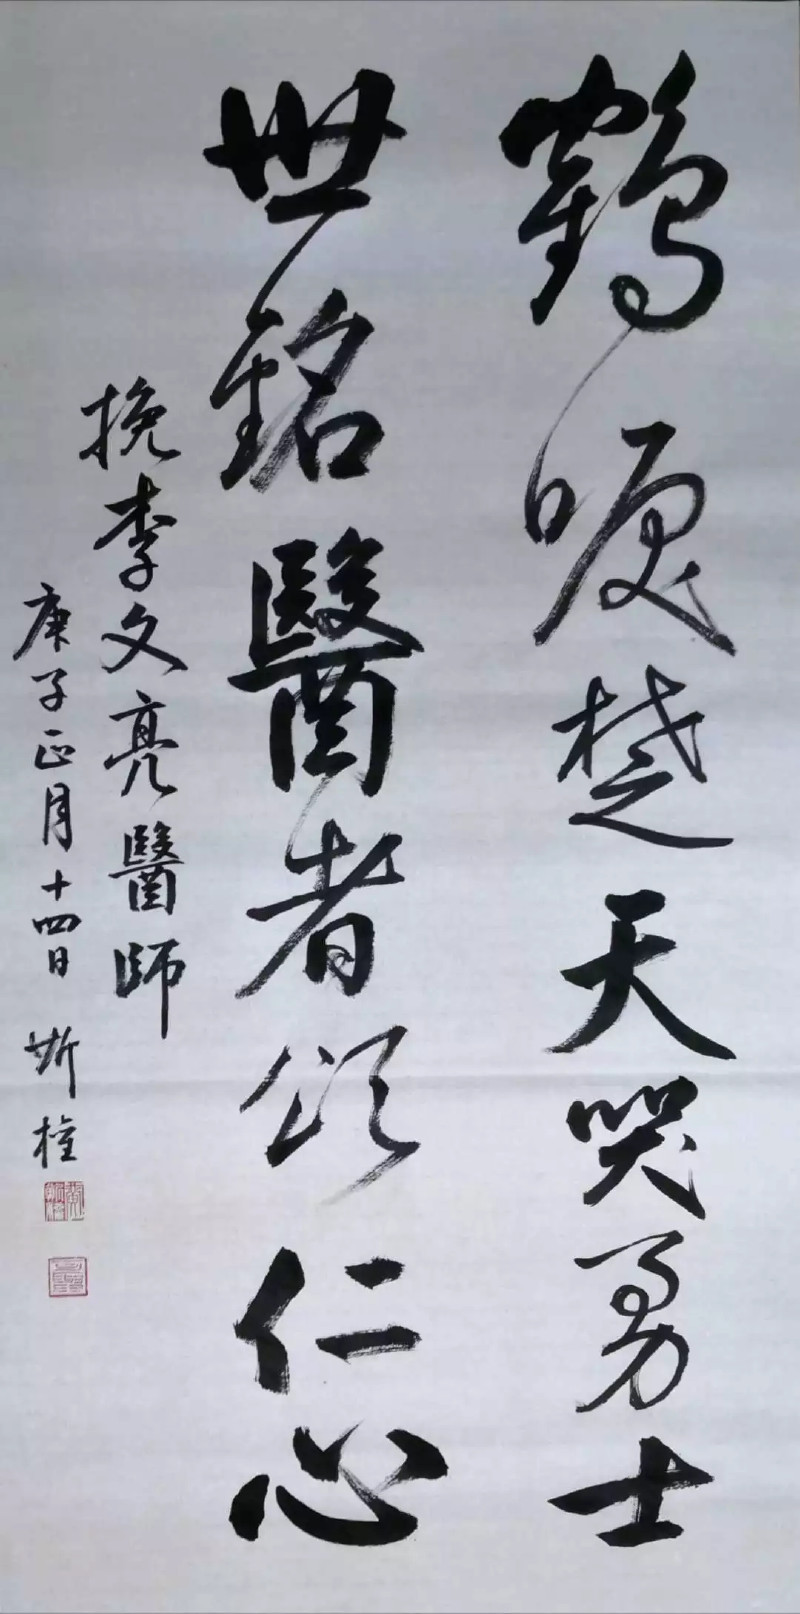 鶴唳楚天哭勇士
世銘醫者頌仁心
挽李文亮醫師
庚子正月十四日 斯權